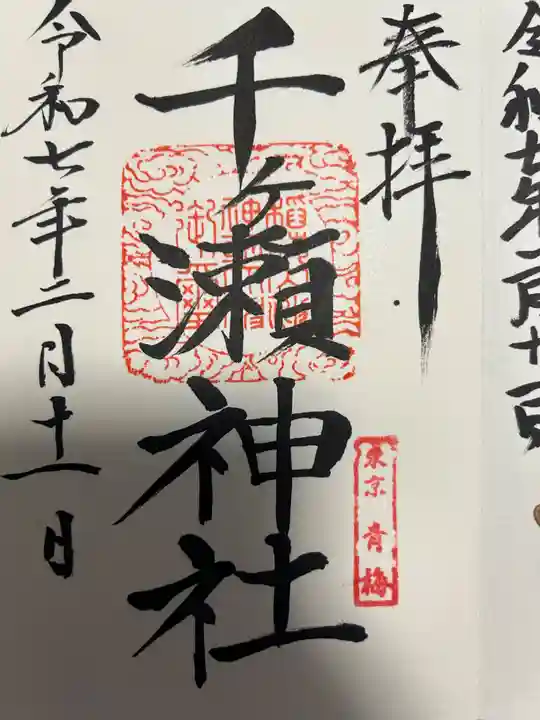 令和七年二月十一日
奉拝
千ヶ瀬神社
東京 青梅
令和七年二月十一日